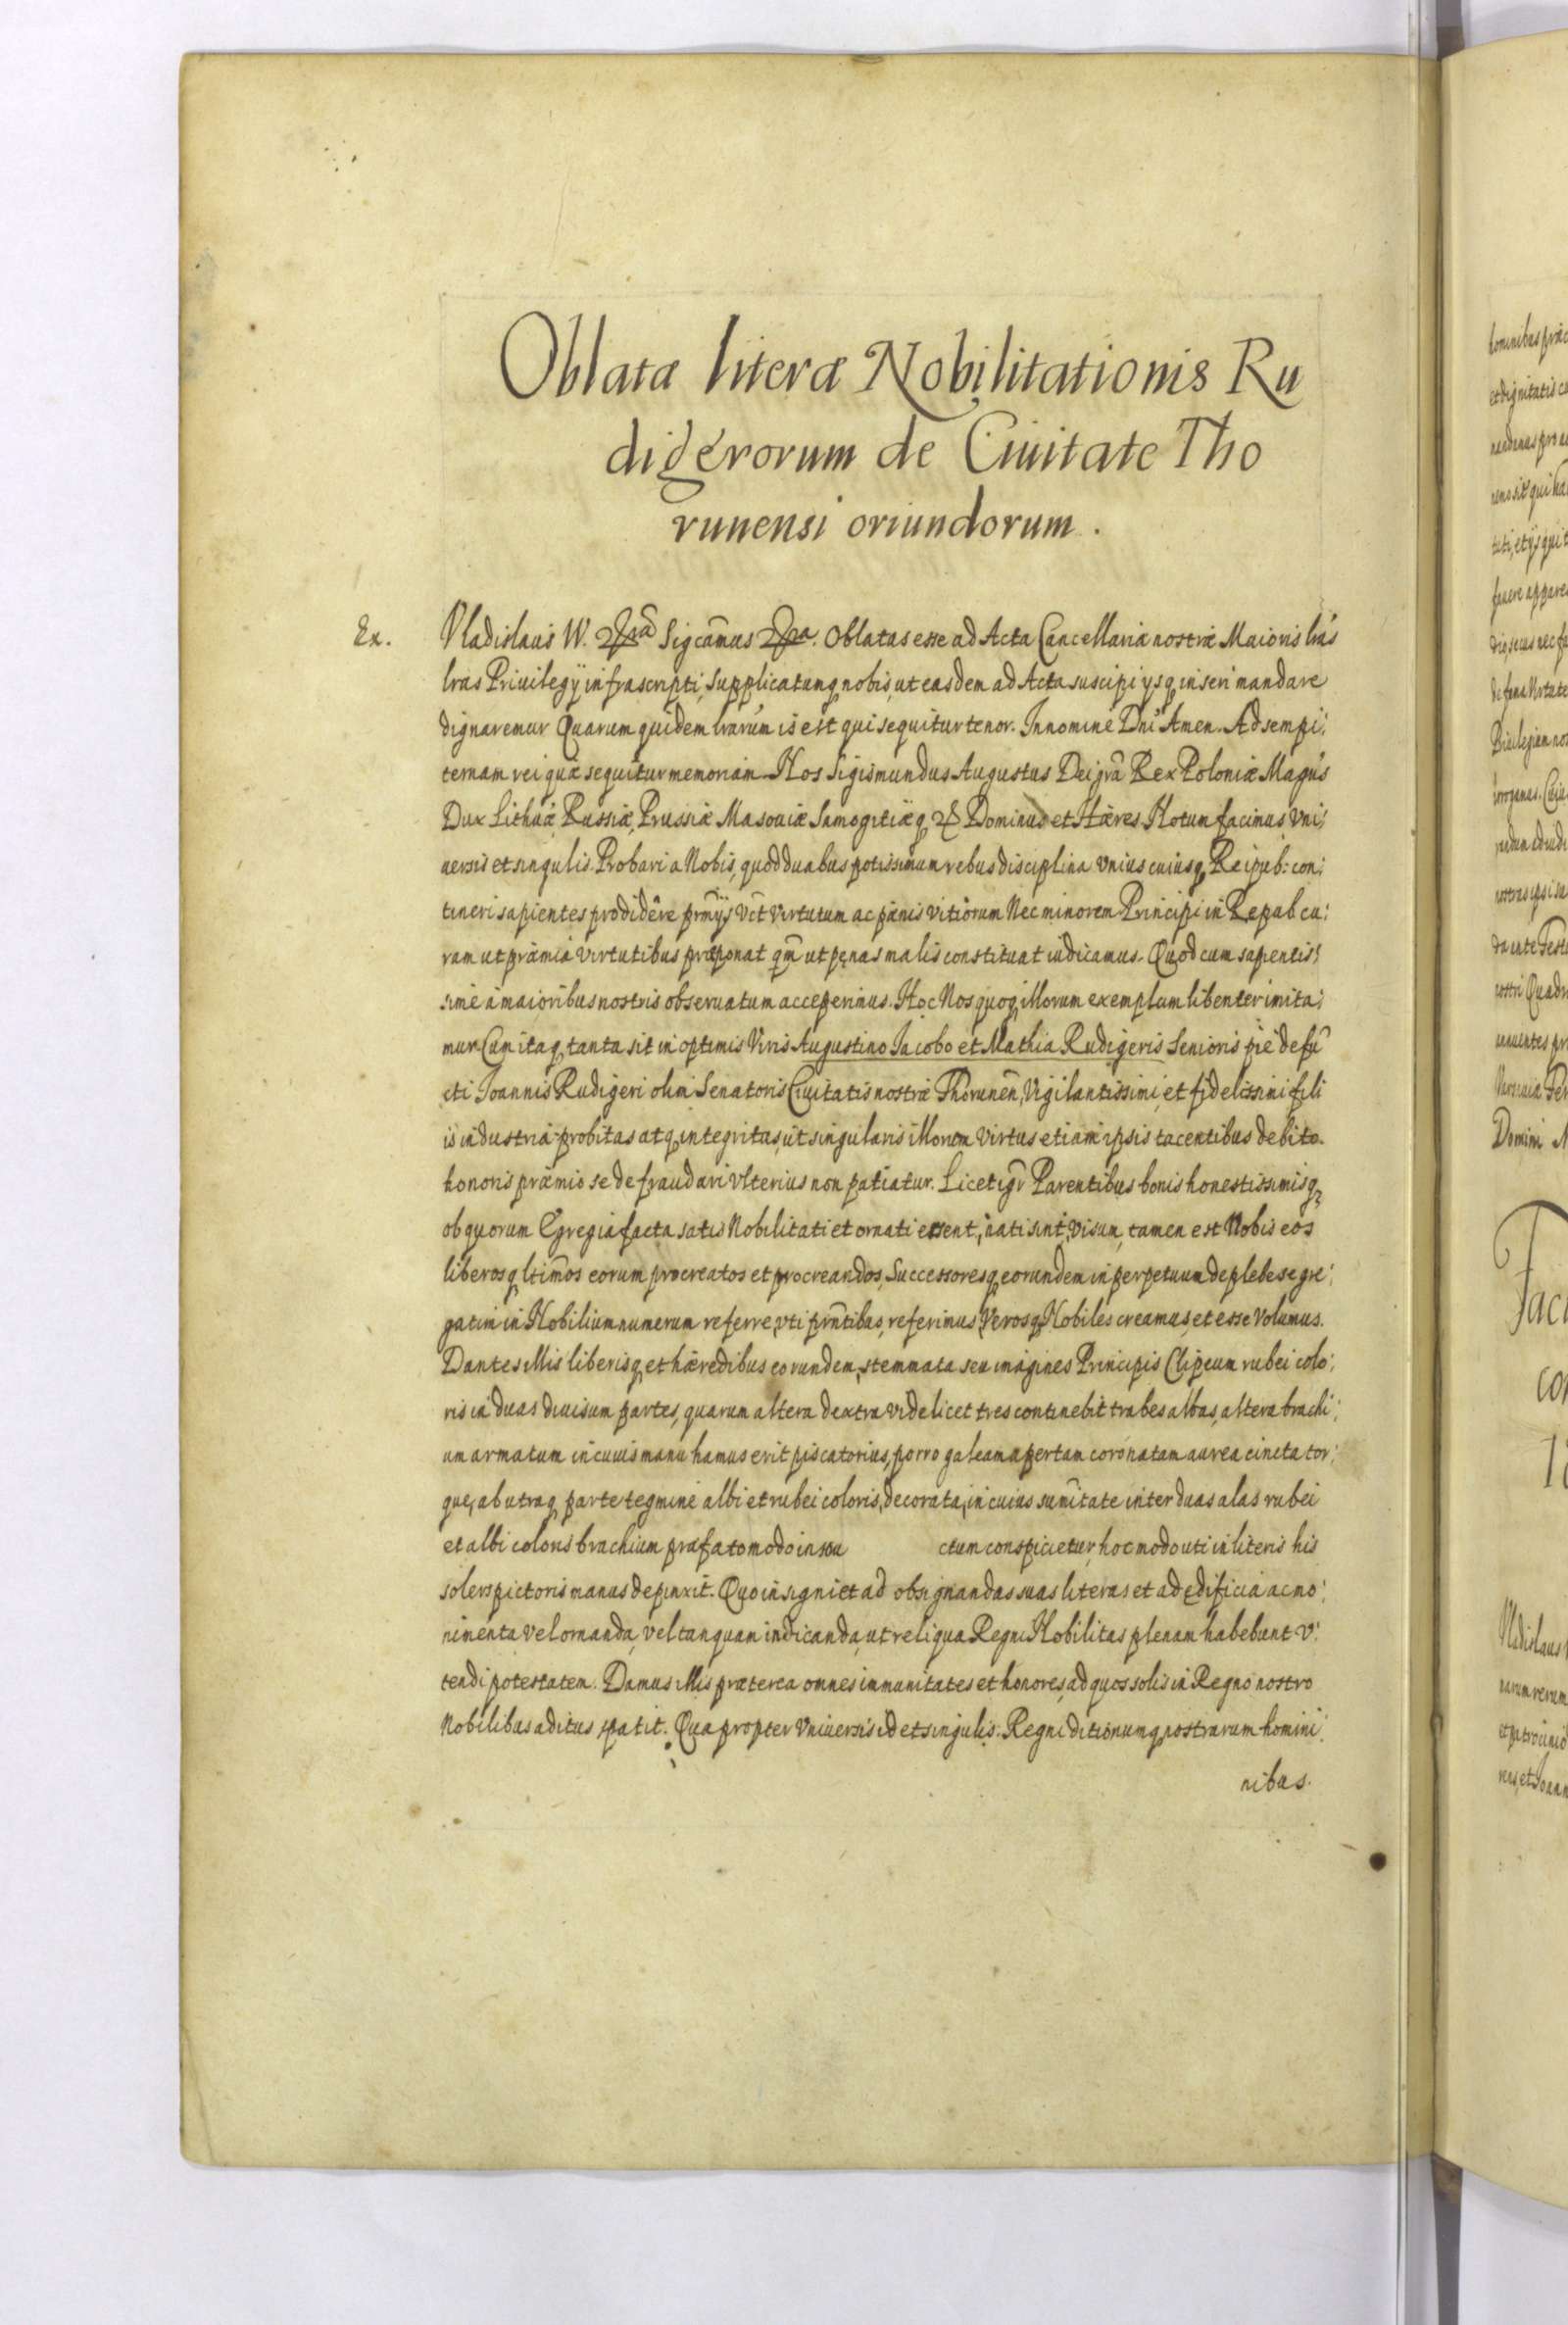 Oblatæ literæ Nobilitationis Ru
digerorum de Ciuitate Tho
runensi oriundorum.
Ex.
Vladislaus W. Sigcamus Oblatas esse ad Acta Cancellariæ nostræ Maioris lrás
lras Priuilegÿ infrascripti, supplicatumq nobis, ut easdem ad Acta suscipi ysq inseri mandare
dignaremur Quarum quidem lrarum is est qui sequitur tenor. In nomine Dni Amen. Ad sempi:
ternam rei quæ sequitur memoriam Nos Sigismundus Augustus Dei grã Rex Poloniæ Magnus
Dux Lithuæ Russiæ, Prussiæ Masouiæ Samogitiæq Dominus et Hæres. Notum facimus Vni:
uersis et singulis. Probari a Nobis, quod duabus potissimum rebus disciplina vnius cuiusq Reipub: con:
tineri sapientes prodidêre prmijs Vct virtutum ac pænis vitiorum Nec minorem Principi in Repub cu:
ram ut præmia virtutibus præponat qm ut penas malis constituat iudicamus. Quod cum sapientis:
sime à maioribus nostris obseruatum acceperimus. Hoc Nos quoq illorum exemplum libenter imita:
mur. Cum itaq tanta sit in optimis Viris Augustino Iacobo et Mathia Rudigeris Senioris pie defu
cti Ioannis Rudigeri olim Senatoris Ciuitatis nostræ Thorunen, Vigilantissimi, et fidelissimi fili
is industria probitas atq integritas, ut singularis illorum virtus etiam ipsis tacentibus debito
honoris præmio se defraudari vlterius non patiatur. Licet igr Parentibus bonis honestissimisq
ob quorum Egregia facta satis Nobilitati et ornati essent, nati sint, visum, tamen est Nobis eos
liberosq ltimos eorum procreatos et procreandos, Successoresq eorundem in perpetuum de plebe segre:
gatim in Nobilium numerum referre, vti prntibus, referimus, Verosq Nobiles creamus, et esse Volumus.
Dantes illis liberisq et hæredibus eorundem, stemmata seu imagines Principis Clipeum rubei colo:
ris in duas diuisum partes, quarum altera dextra videlicet tres continebit trabes albas, altera brachi:
um armatum in cuius manu hamus erit piscatorius, porro galeam apertam coronatam aurea cincta tor:
que, ab utraq parte tegmine albi et rubei coloris, decorata, in cuius sumitate inter duas alas rubei
et albi coloris brachium præfato modo instru ctum conspicietur, hoc modo uti in literis his
solers pictoris manus depinxit. Quo insigni et ad obsignandas suas literas et ad ędificia ac mo:
nimenta vel ornanda, vel tanquam indicanda, ut reliqua Regni Nobilitas plenam habebunt v:
tendi potestatem. Damus illis præterea omnes immunitates et honores, ad quos solis in Regno nostro
Nobilibus aditus patit. Quapropter Vniuersis id et singulis. Regni ditionumq nostrarum homini:
nibus.